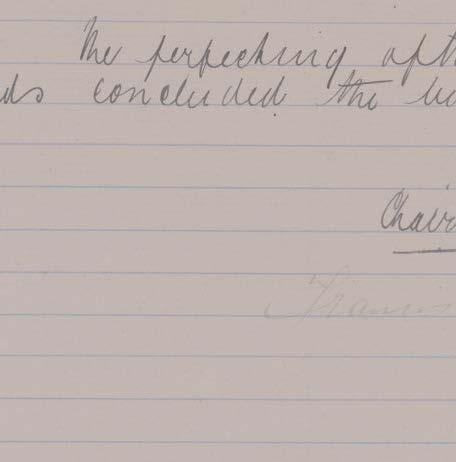 The perfecting of th
ds concluded the bu
Chair
Francis